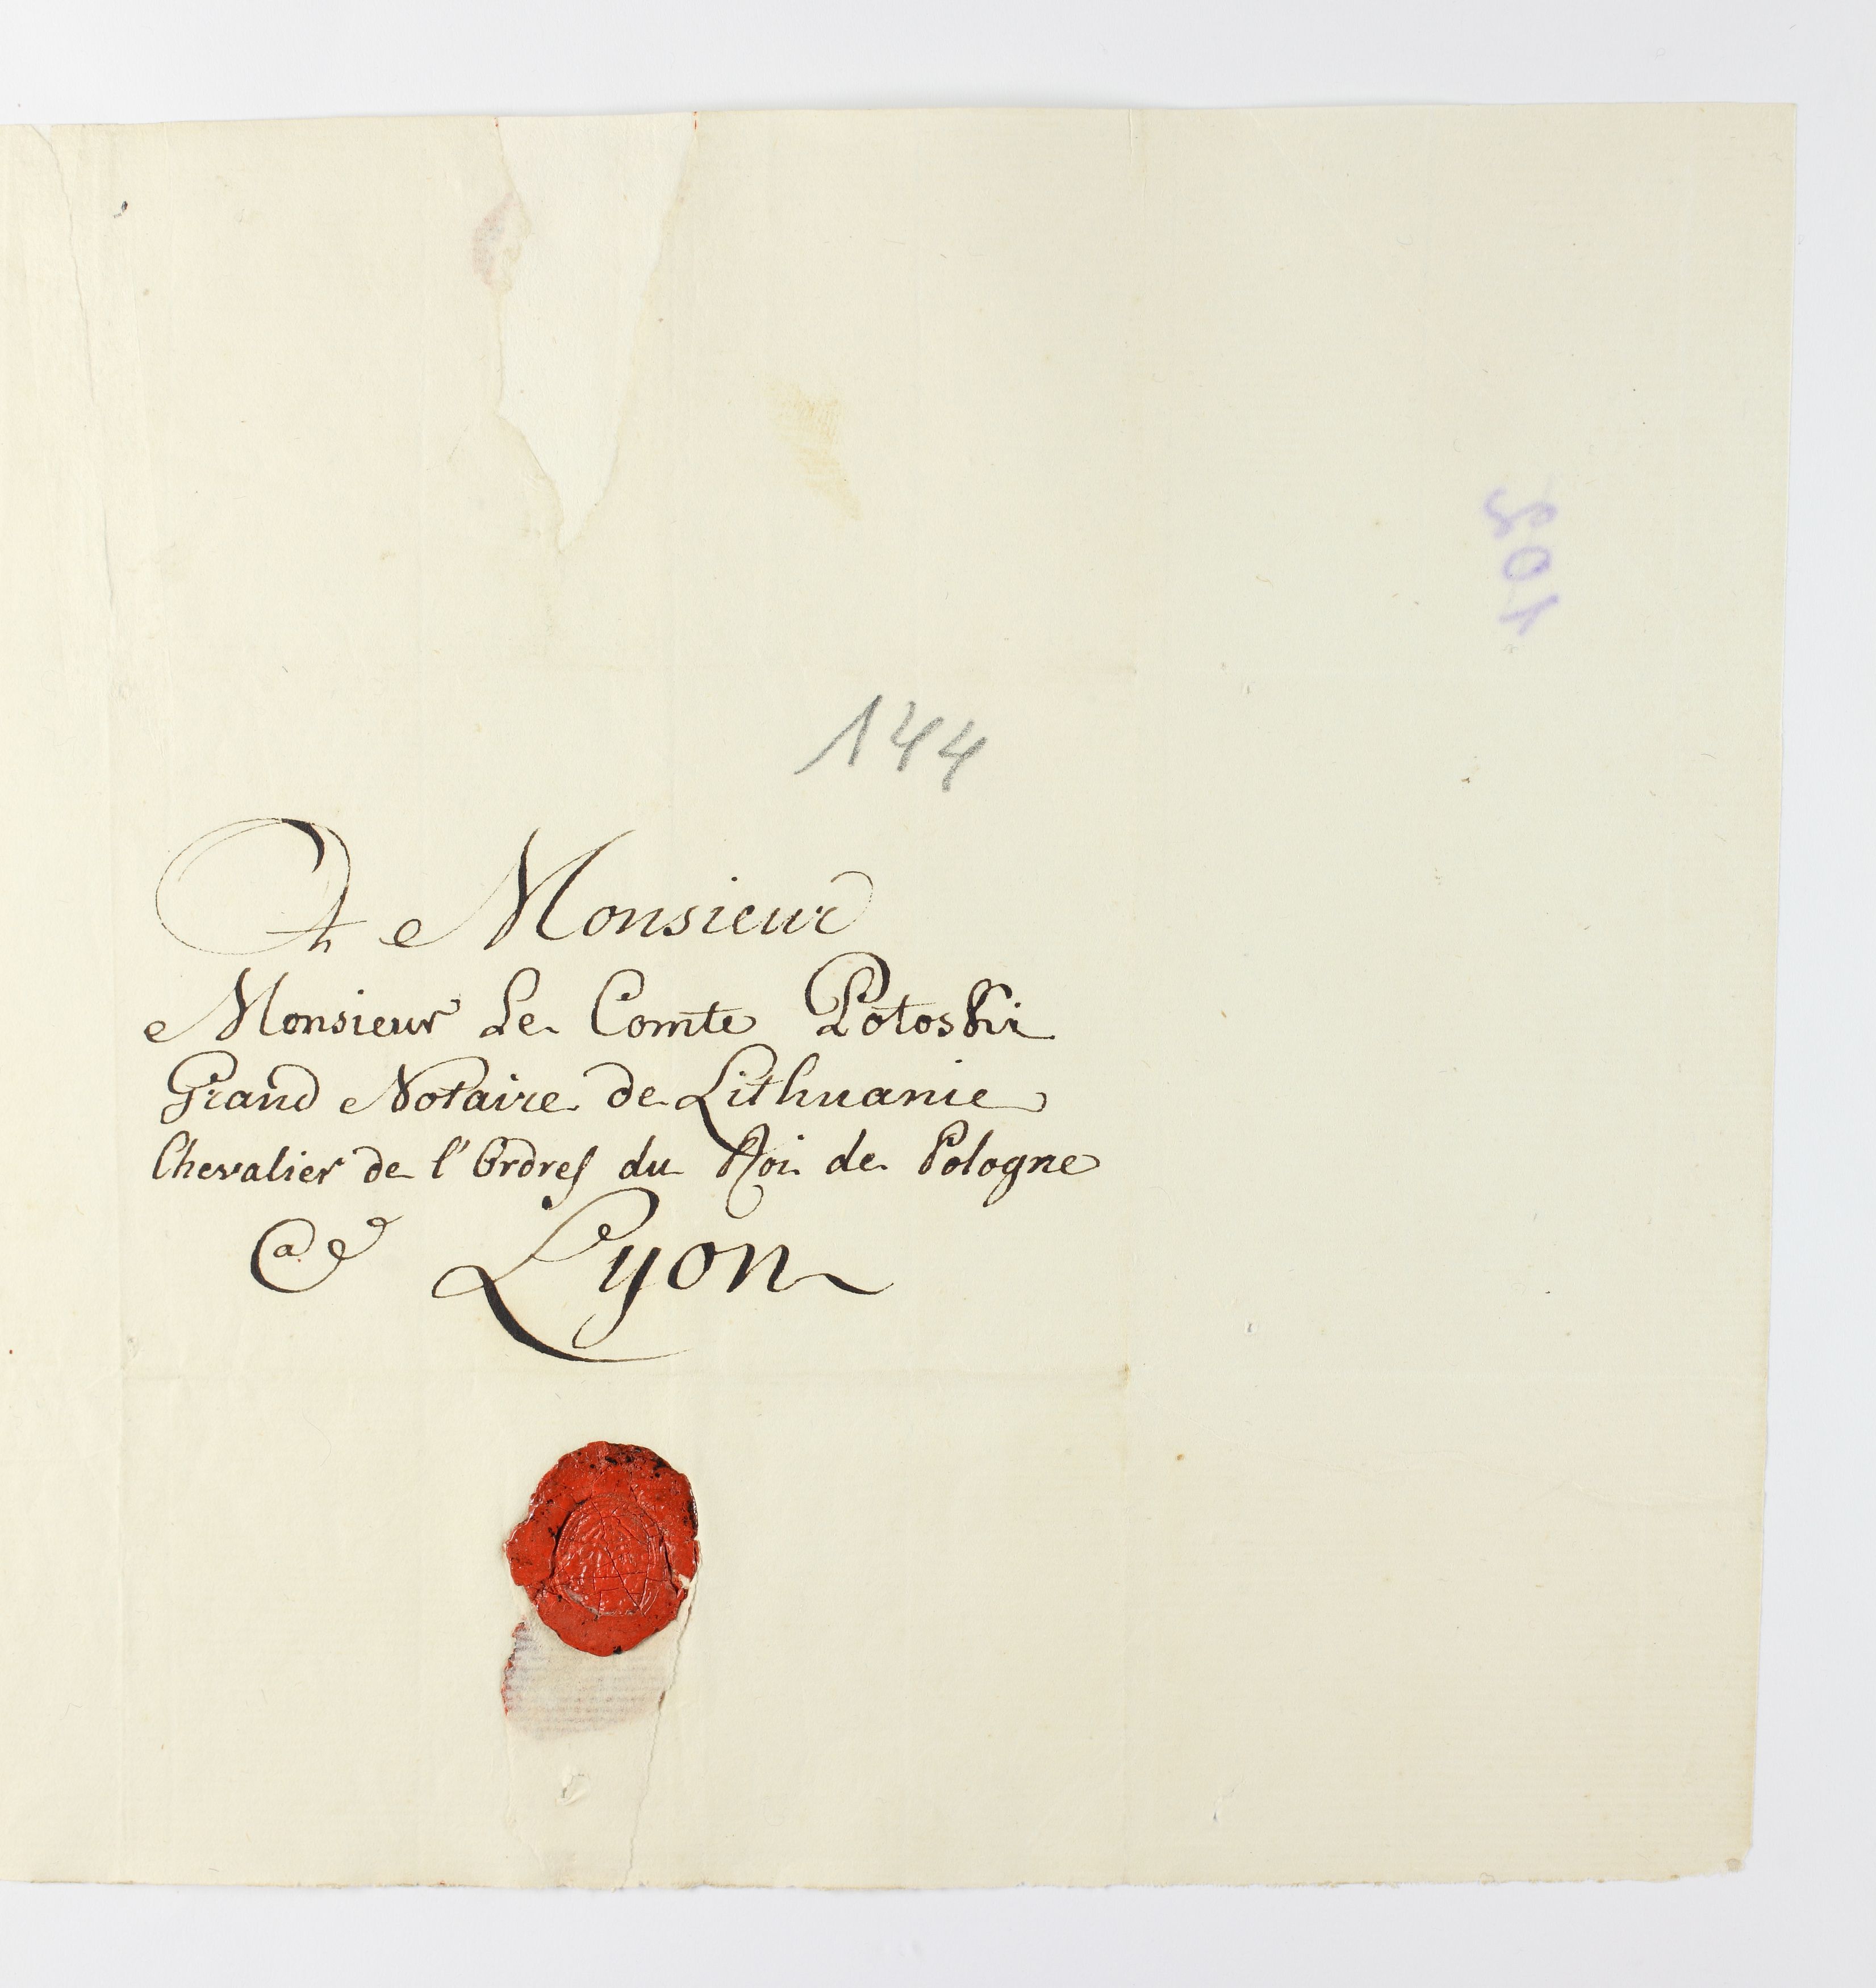 105
144
A Monsieur
Monsieur Le Comte Potoski
Grand Notaire de Lithuanie
Chevalier de l'Ordres du Roi de Pologne
a Lyon